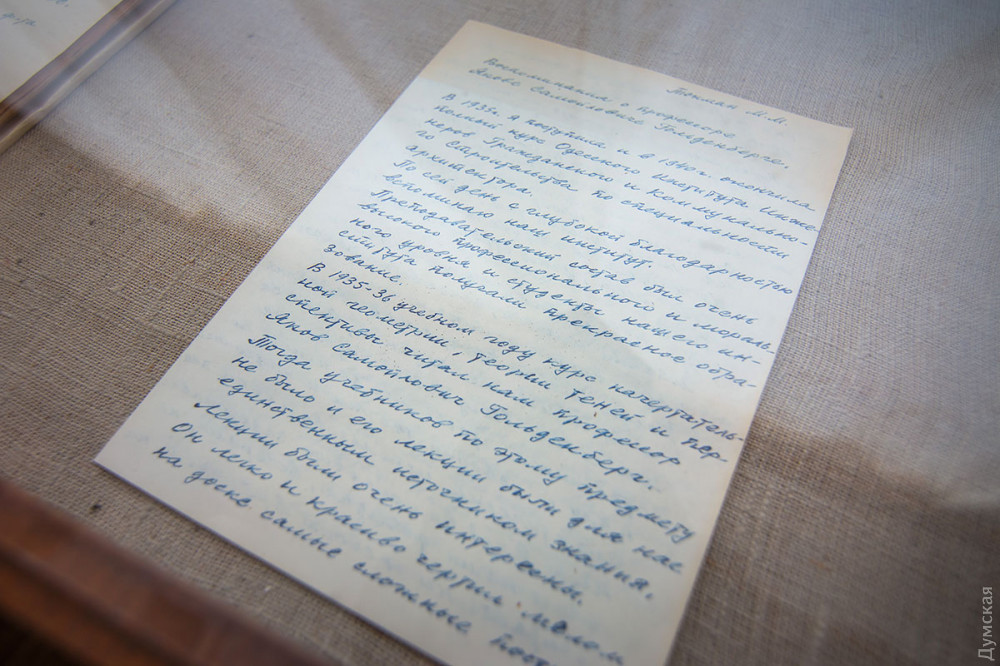 Токман М.М.
Воспоминания о профессоре
Якове Самойловиче Гольденберге.
В 1935г. я поступила и в 1940г. окончила
полный курс Одесского Института Инже-
неров Гражданского и Коммунально-
го Строительства по специальности
архитектора.
По сей день с глубокой благодарностью
вспоминаю наш институт.
Преподавательский состав был очень
высокого профессионального и мораль-
ного уровня и студенты нашего ин-
ститута получили прекрасное обра-
зование.
В 1935-36 учебном году курс начертатель-
ной геометрии, теории теней и пер-
спективы читал нам профессор
Яков Самойлович Гольденберг.
Тогда учебников по этому предмету
не было и его лекции были для нас
единственным источником знания.
Лекции были очень интересны.
Он легко и красиво чертил мелом
на доске самые сложные
Думская